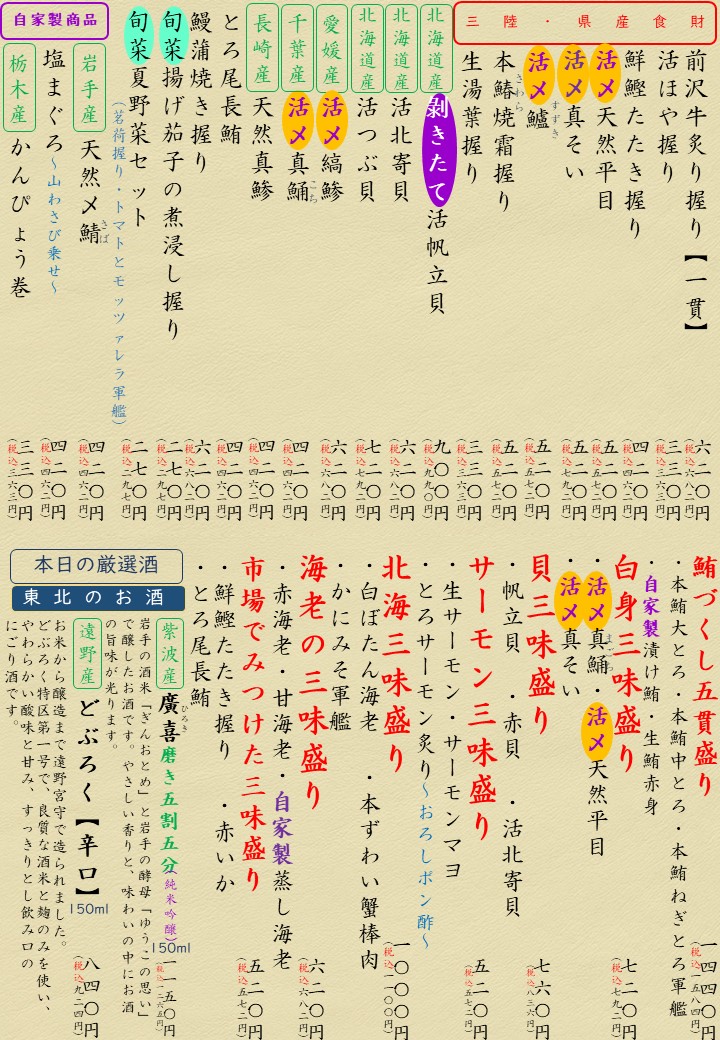 三陸・県産食財
前沢牛炙り握り【一貫】 六二〇円 (税込六八二円)
活ほや握り 三三〇円 (税込三六三円)
鮮鰹たたき握り 四二〇円 (税込四六二円)
活〆天然平目 五二〇円 (税込五七二円)
活〆真そい 五二〇円 (税込五七二円)
活〆鱸 すずき 五二〇円 (税込五七二円)
本鰆焼霜握り さわら 五二〇円 (税込五七二円)
生湯葉握り 三三〇円 (税込三六三円)
北海道産 剥きたて活帆立貝 九〇〇円 (税込九九〇円)
北海道産 活北寄貝 六二〇円 (税込六八二円)
北海道産 活つぶ貝 七二〇円 (税込七九二円)
愛媛産 活〆縞鯵 六二〇円 (税込六八二円)
千葉産 活〆真鯒 こち 四二〇円 (税込四六二円)
長崎産 天然真鯵 四二〇円 (税込四六二円)
とろ尾長鮪 四二〇円 (税込四六二円)
鰻蒲焼き握り 六二〇円 (税込六八二円)
旬菜揚げ茄子の煮浸し握り 二七〇円 (税込二九七円)
旬菜夏野菜セット 二七〇円 (税込二九七円)
(茗荷握り・トマトとモッツァレラ軍艦)
自家製商品
岩手産 天然〆鯖 さば 四二〇円 (税込四六二円)
塩まぐろ～山わさび乗せ～ 四二〇円 (税込四六二円)
栃木産 かんぴょう巻 三三〇円 (税込三六三円)
鮪づくし五貫盛り 一四四〇円 (税込一五八四円)
・本鮪大とろ・本鮪中とろ・本鮪ねぎとろ軍艦
・自家製漬け鮪・生鮪赤身
白身三味盛り 七二〇円 (税込七九二円)
・活〆真鯒 まごち ・活〆天然平目
・活〆真そい
貝三味盛り 七六〇円 (税込八三六円)
・帆立貝 ・赤貝 ・活北寄貝
サーモン三味盛り 五二〇円 (税込五七二円)
・生サーモン・サーモンマヨ
・とろサーモン炙り～おろしポン酢～
北海三味盛り 一〇〇〇円 (税込一一〇〇円)
・白ぼたん海老 ・本ずわい蟹棒肉
・かにみそ軍艦
海老の三味盛り 六二〇円 (税込六八二円)
・赤海老・甘海老・自家製蒸し海老
市場でみつけた三味盛り 五二〇円 (税込五七二円)
・鮮鰹たたき握り ・赤いか
・とろ尾長鮪
本日の厳選酒
東北のお酒
紫波産 廣喜 ひろき 磨き五割五分(純米吟醸) 150ml 一一五〇円 (税込一二六五円)
岩手の酒米「ぎんおとめ」と岩手の酵母「ゆうこの思い」
で醸したお酒です。やさしい香りと、味わいの中にお酒
の旨味が光ります。
遠野産 どぶろく【辛口】 150ml 八四〇円 (税込九二四円)
お米から醸造まで遠野宮守で造られました。
どぶろく特区第一号で、良質な酒米と麹のみを使い、
やわらかい酸味と甘み、すっきりとし飲み口の
にごり酒です。